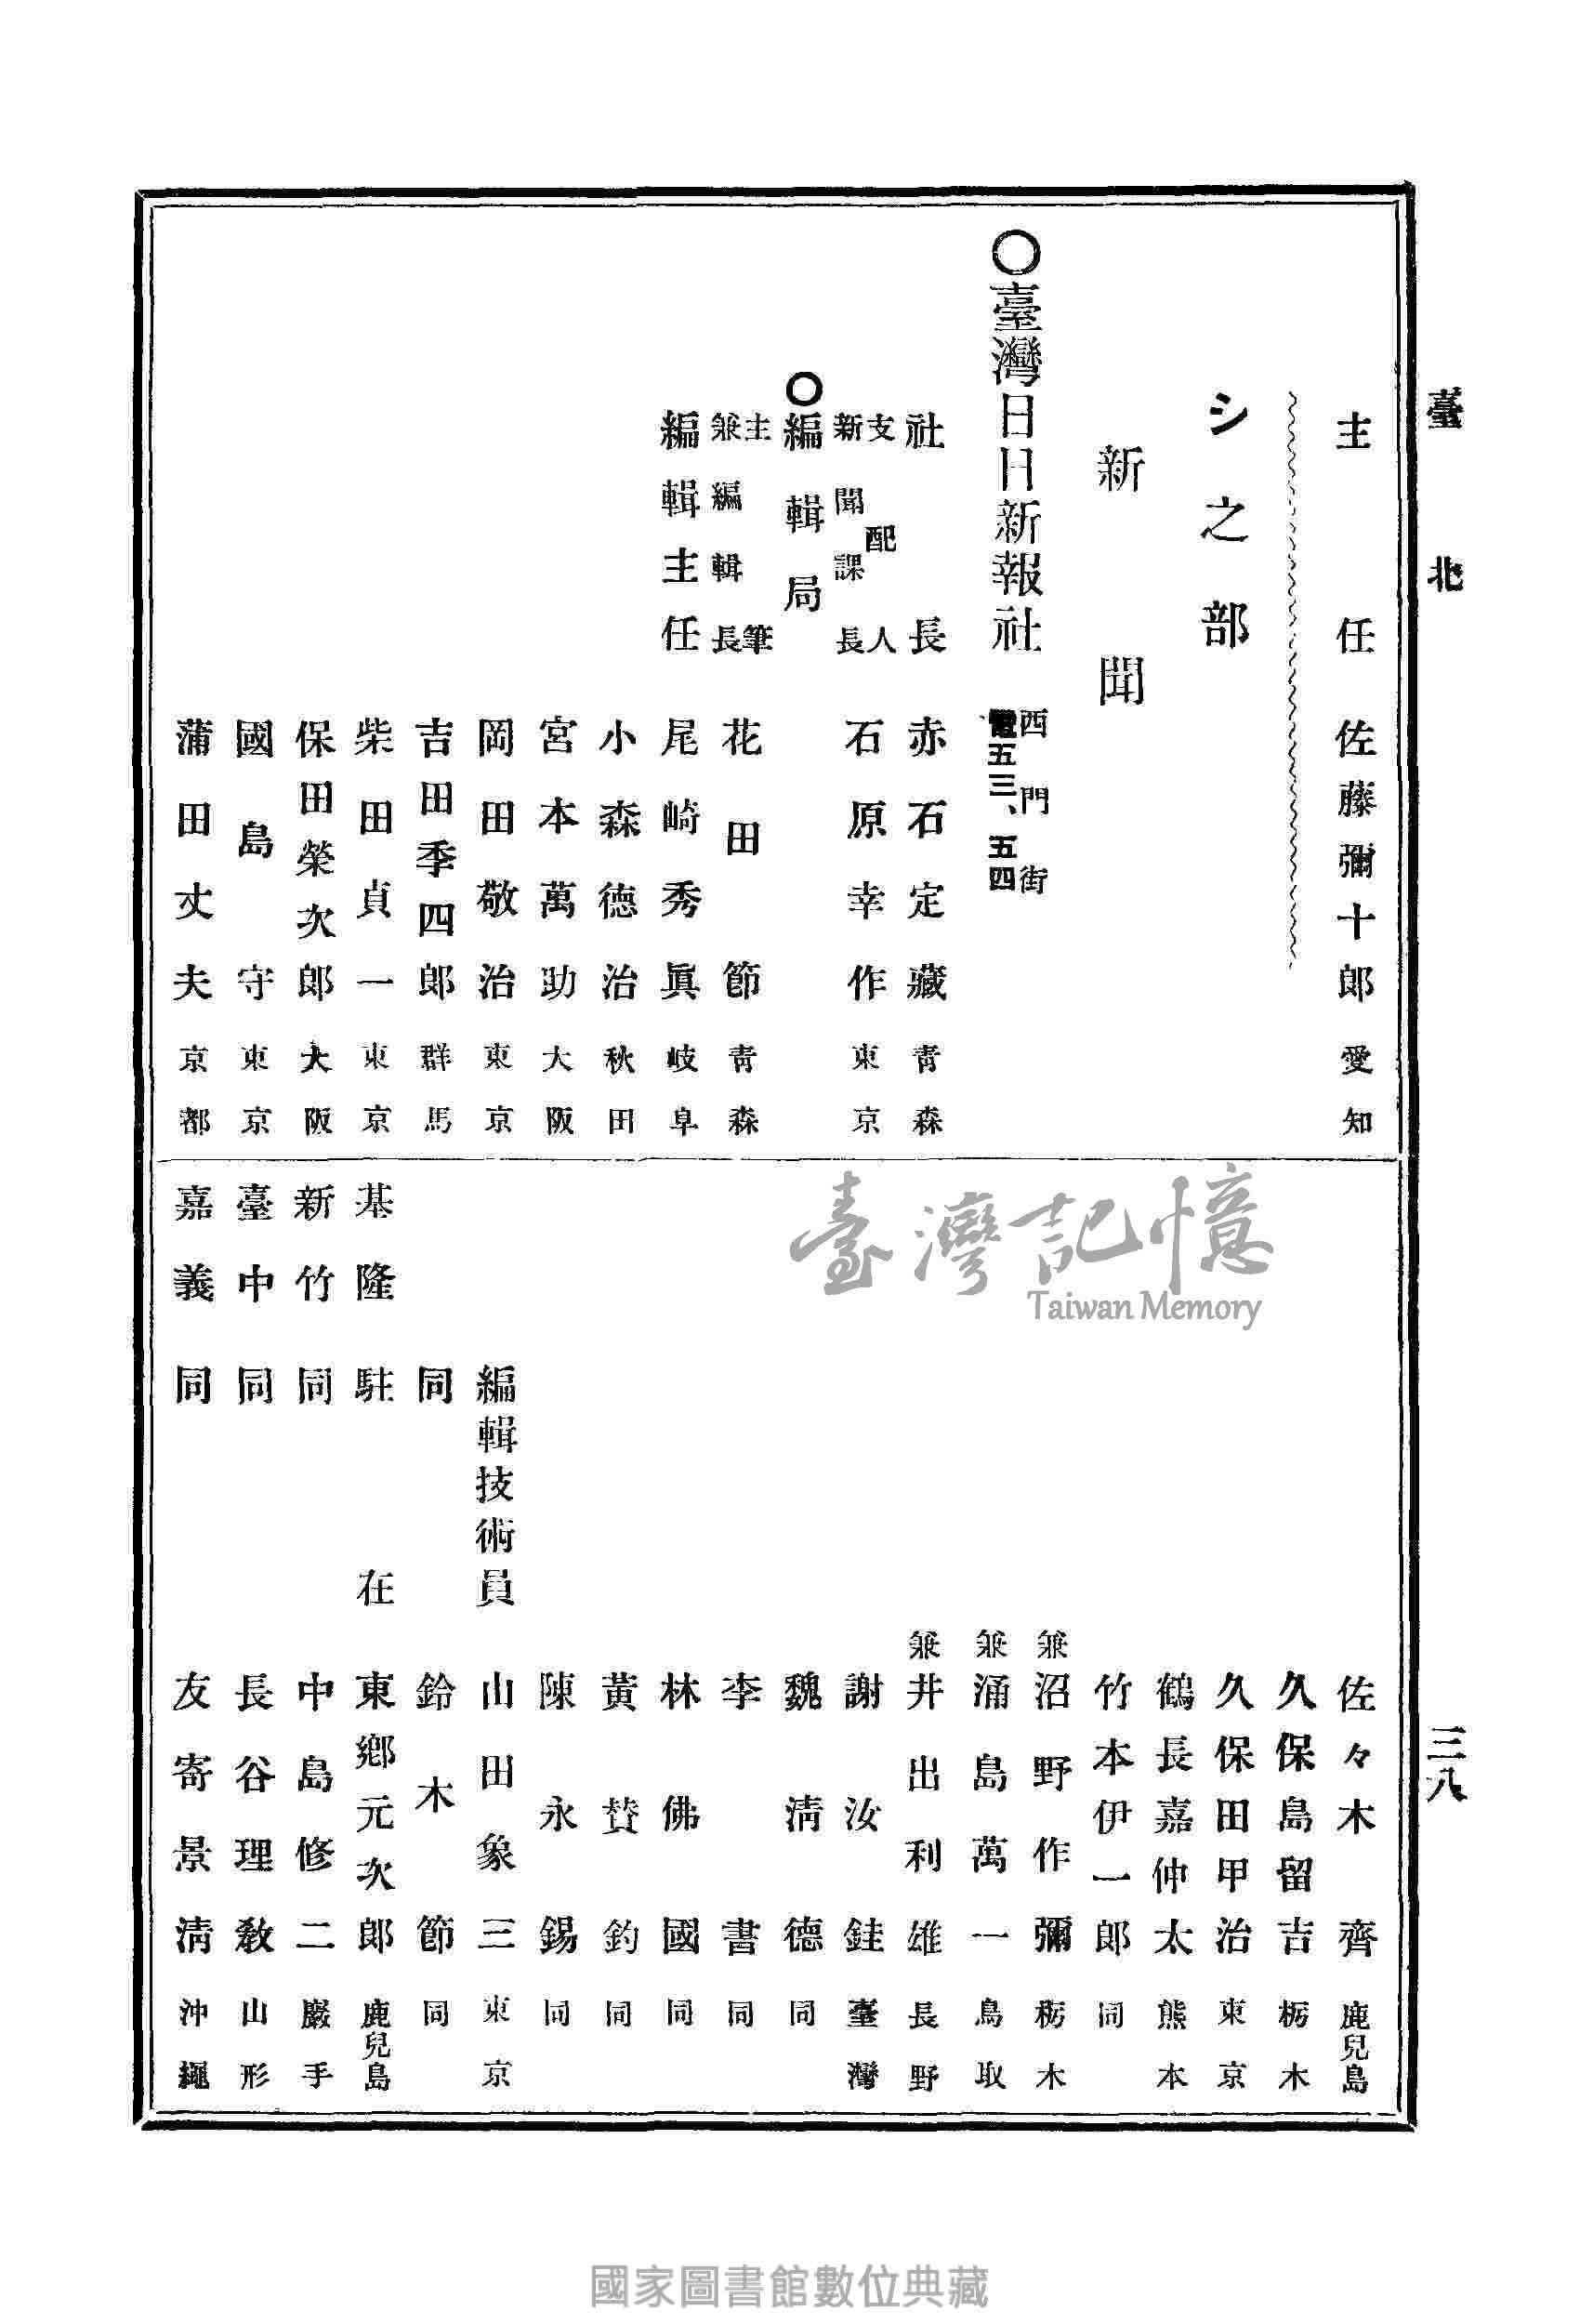 臺北
三八
主任 佐藤彌十郎 愛知
シ之部
新聞
〇臺灣日日新報社 西門街 電五三、五四
社長 赤石定藏 靑森
支配人
新聞課長 石原幸作 東京
〇編輯局
主筆
兼編輯長 花田節 靑森
編輯主任 尾崎秀眞 岐阜
小森德治 秋田
宮本萬助 大阪
岡田敬治 東京
吉田季四郎 群馬
柴田貞一 東京
保田榮次郎 大阪
國島守 東京
蒲田丈夫 京都
佐々木齊 鹿兒島
久保島留吉 栃木
久保田甲治 東京
鶴長嘉仲太 熊本
竹本伊一郎 同
兼 沼野作彌 栃木
兼 涌島萬一 鳥取
兼 井出利雄 長野
謝汝銈 臺灣
魏淸德 同
李書 同
林佛國 同
黃贊鈞 同
陳永錫 同
編輯技術員 山田象三 東京
同 鈴木節 同
基隆駐在 東鄕元次郎 鹿兒島
新竹同 中島修二 巖手
臺中同 長谷理敎 山形
嘉義同 友寄景淸 沖繩
臺灣記憶
Taiwan Memory
國家圖書館數位典藏